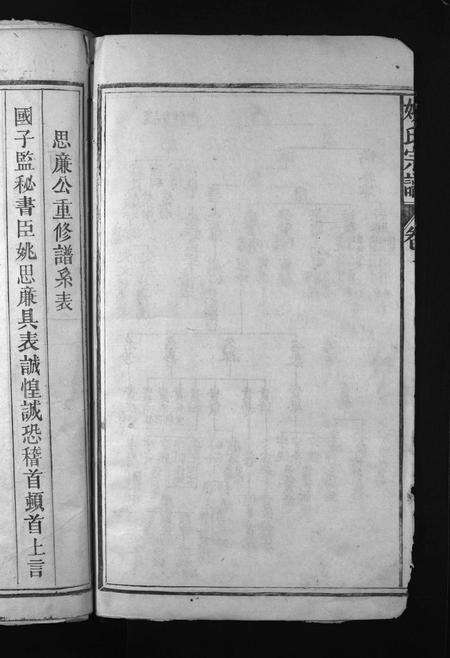 姚氏宗譜
卷
思廉公重修譜系表
國子監秘書臣姚思廉具表誠惶誠恐稽首頓首上言